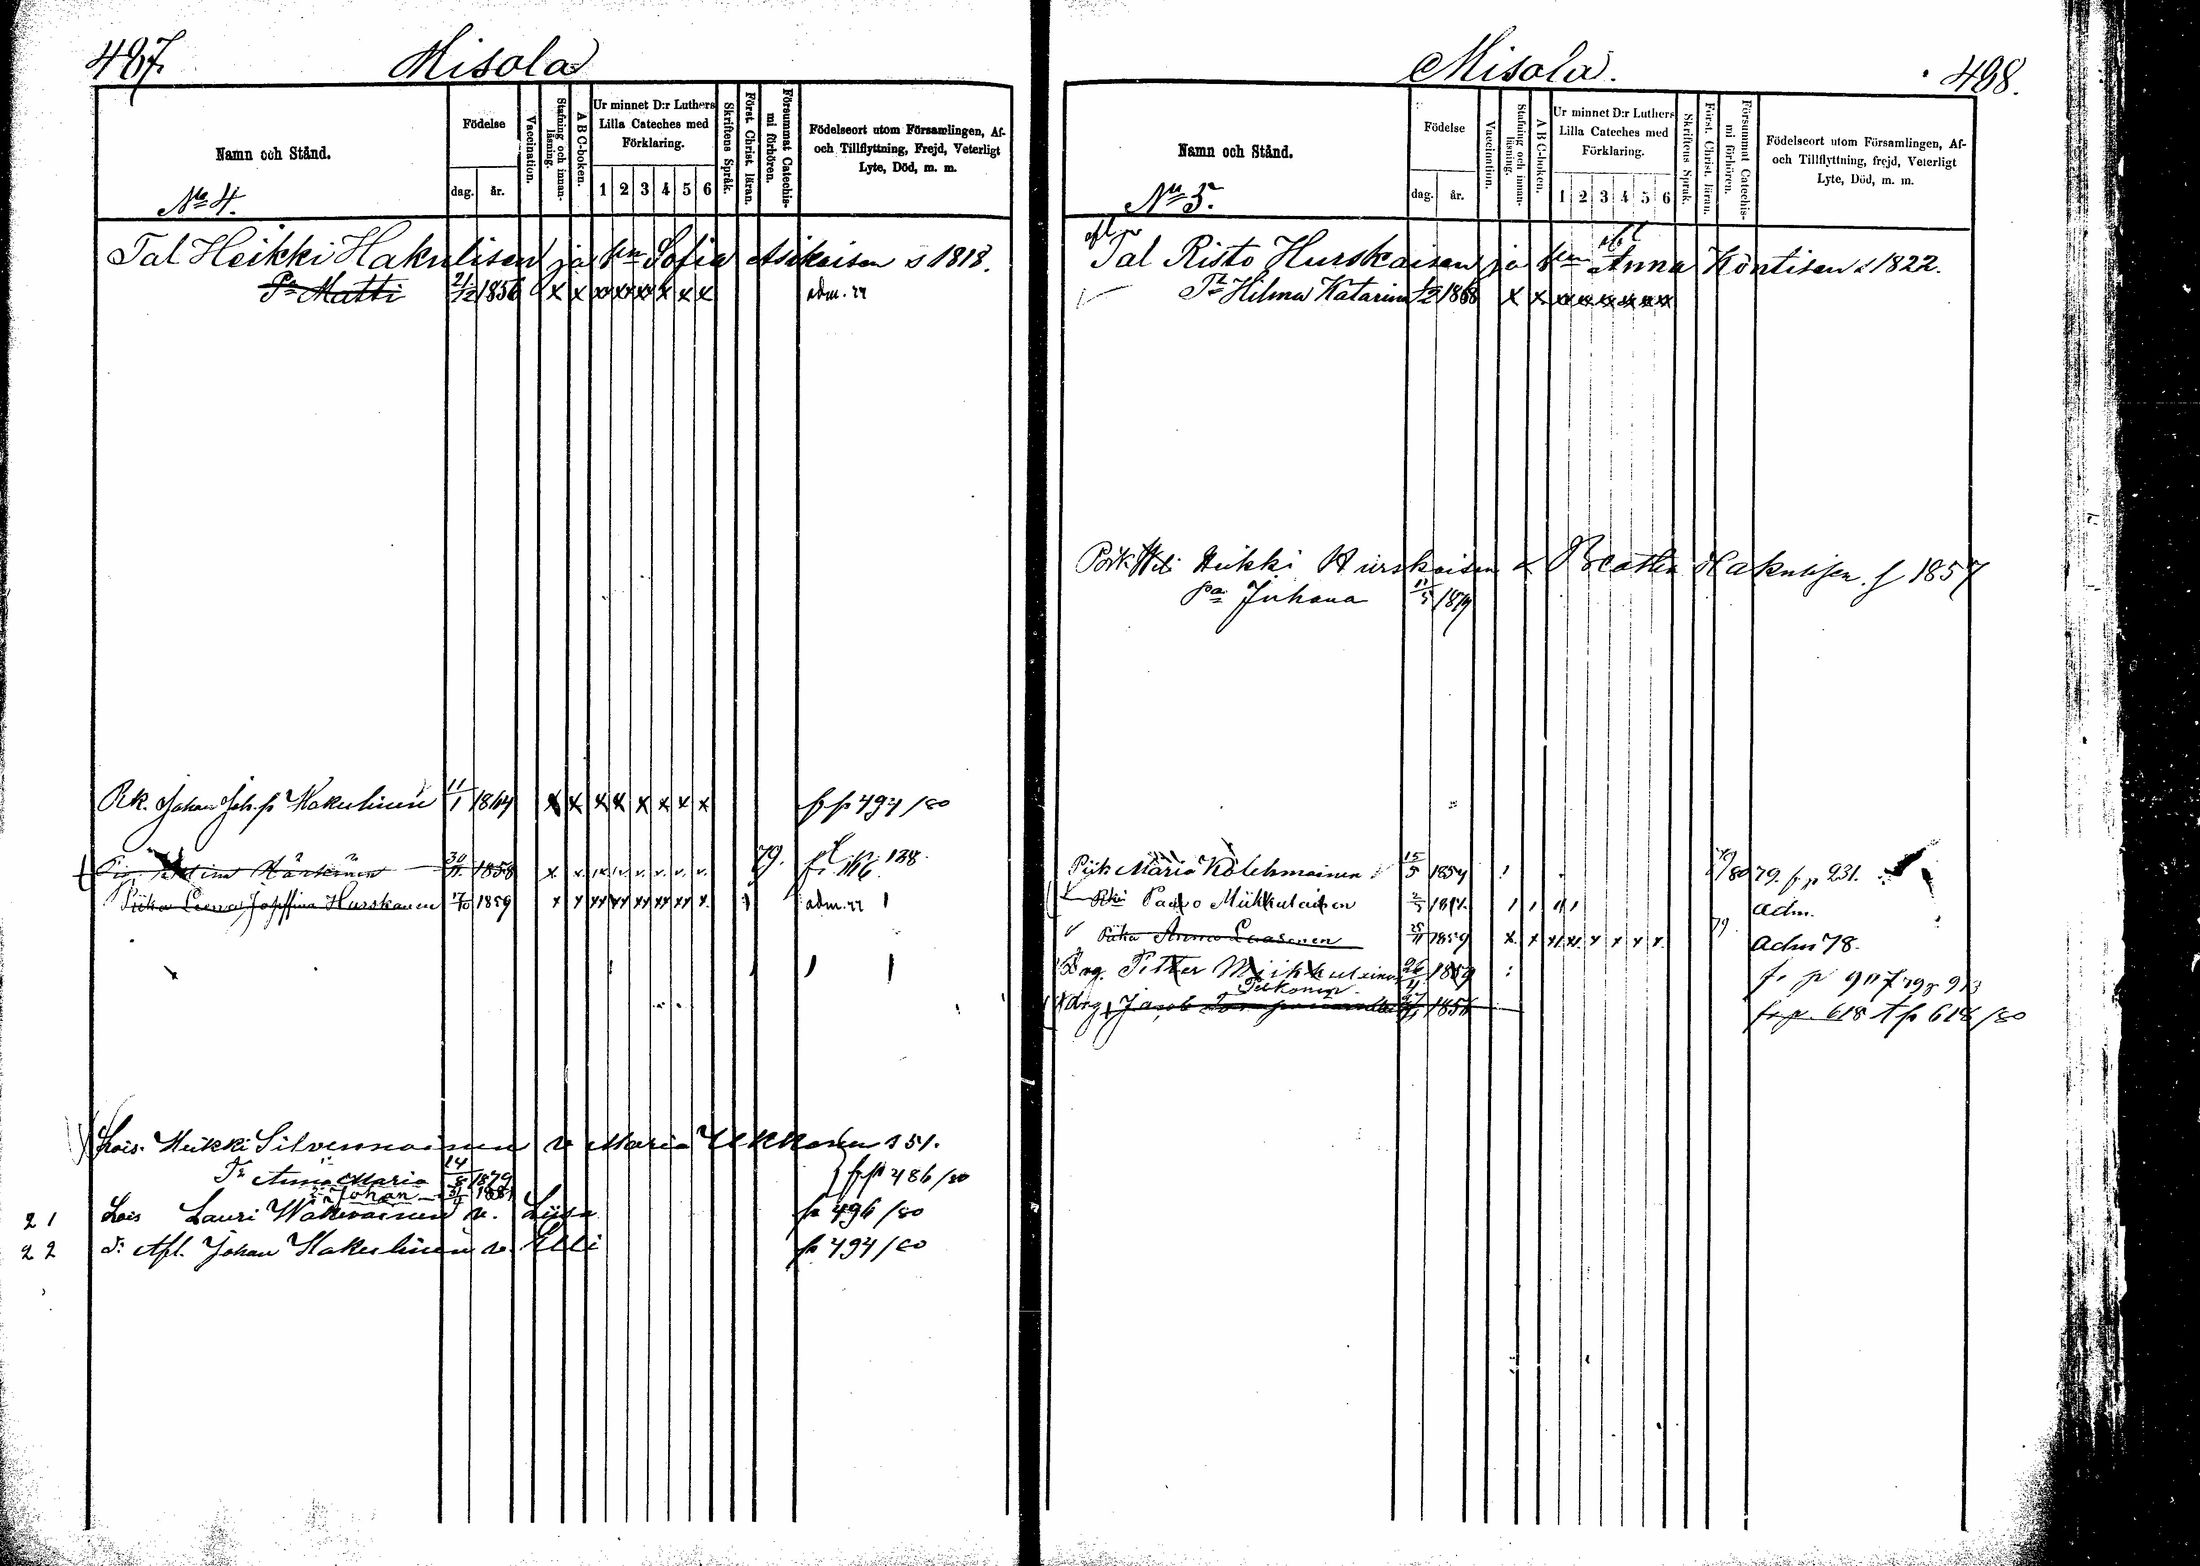 487.
Misola
Namn och Stånd.
No 4.
Födelse
dag.
år.
Vaccination.
Stafning och innan-läsning.
A B C-boken.
Ur minnet D:r Luthers
Lilla Cateches med
Förklaring.
1 2 3 4 5 6
Skriftens Språk.
Först. Christ. läran.
Försummat Catechis-mi förhören.
Födelseort utom Församlingen, Af-
och Tillflyttning, Frejd, Veterligt
Lyte, Död, m. m.
Tal Heikki Hakulisen ja vn Sofia Asikaisen s 1818.
Pa Matti 21/12 1856 x x x x x x x x adm. 77
Rk. Johan Joh. p Hakulinen 11/1 1864 x x x x x x x x fr p 494/80
30/11 1858 x x v. v. v. v. 79. 138.
Piika Leena Josefiina Hurskanen 17/10 1859 x x xx xx xx xx xx x. adm. 77
Lois. Heikki Silvennoinen v Maria Ukkonen s 51.
Tr Anna Maria 14/8 1879 fr p 486/80
Johan 31/ 1881
21 Lois Lauri Wäkeväinen v. Liisa p 496/80
22 d: Afl. Johan Hakulinen v. Elli p 494/80
Misola.
498.
Namn och Stånd.
No 5.
Födelse
dag.
år.
Vaccination.
Stafning och innan-läsning.
A B C-boken.
Ur minnet D:r Luthers
Lilla Cateches med
Förklaring.
1 2 3 4 5 6
Skriftens Språk.
Först. Christ. läran.
Försummat Catechis-mi förhören.
Födelseort utom Församlingen, Af-
och Tillflyttning, frejd, Veterligt
Lyte, Död, m. m.
afl afl
Tal Risto Hurskaisen ja vn Anna Köntisen s 1822.
Tr Hilma Katarina /2 1868 x x x x x x x x
Heikki Hurskaisen & Beatha Hakulisen f 1857
pa Juhana 11/5 1879
Piik Maria Kolehmainen 15/5 1854 79/80 79. fr p 231.
Rki Paavo Miikkulainen adm.
Piika Anna Laasonen 25/11 1859 x. x x x x x x x. 79 adm 78.
Drg. Petter Miikkulainen 26/ 1859 fr p 917
Pekonen
drg Jacob 1856 fr p 618 t p 618/80